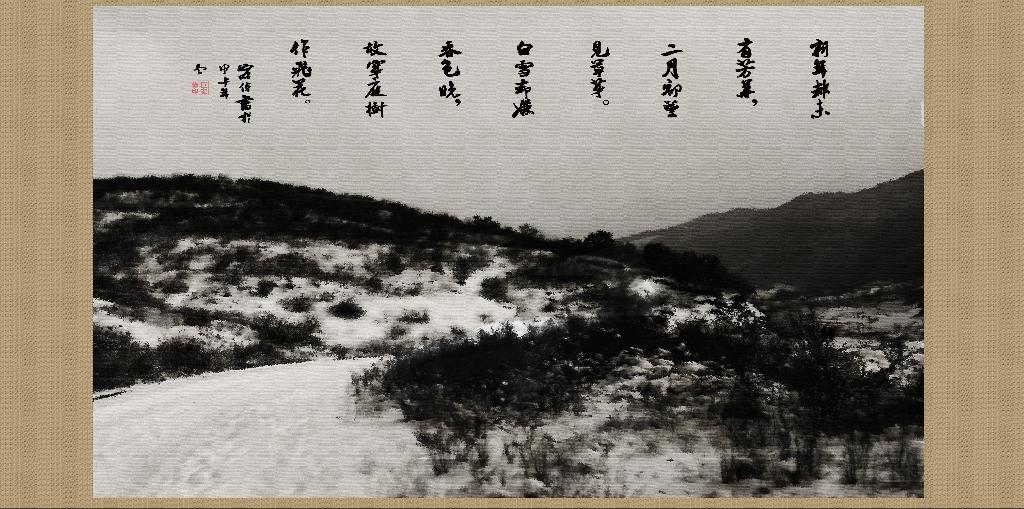 新年都未
有芳華，
二月初驚
見草芽。
白雪却嫌
春色晚，
故穿庭樹
作飛花。
書於
甲午年
冬